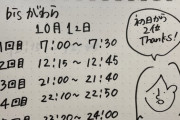 bis がわら
10月12日
1回目 7:00〜7:30
2回目 12:15〜12:45
3回目 21:00〜21:40
4回目 22:10〜22:50
23:20〜24:00
初日から
21位
Thanks!